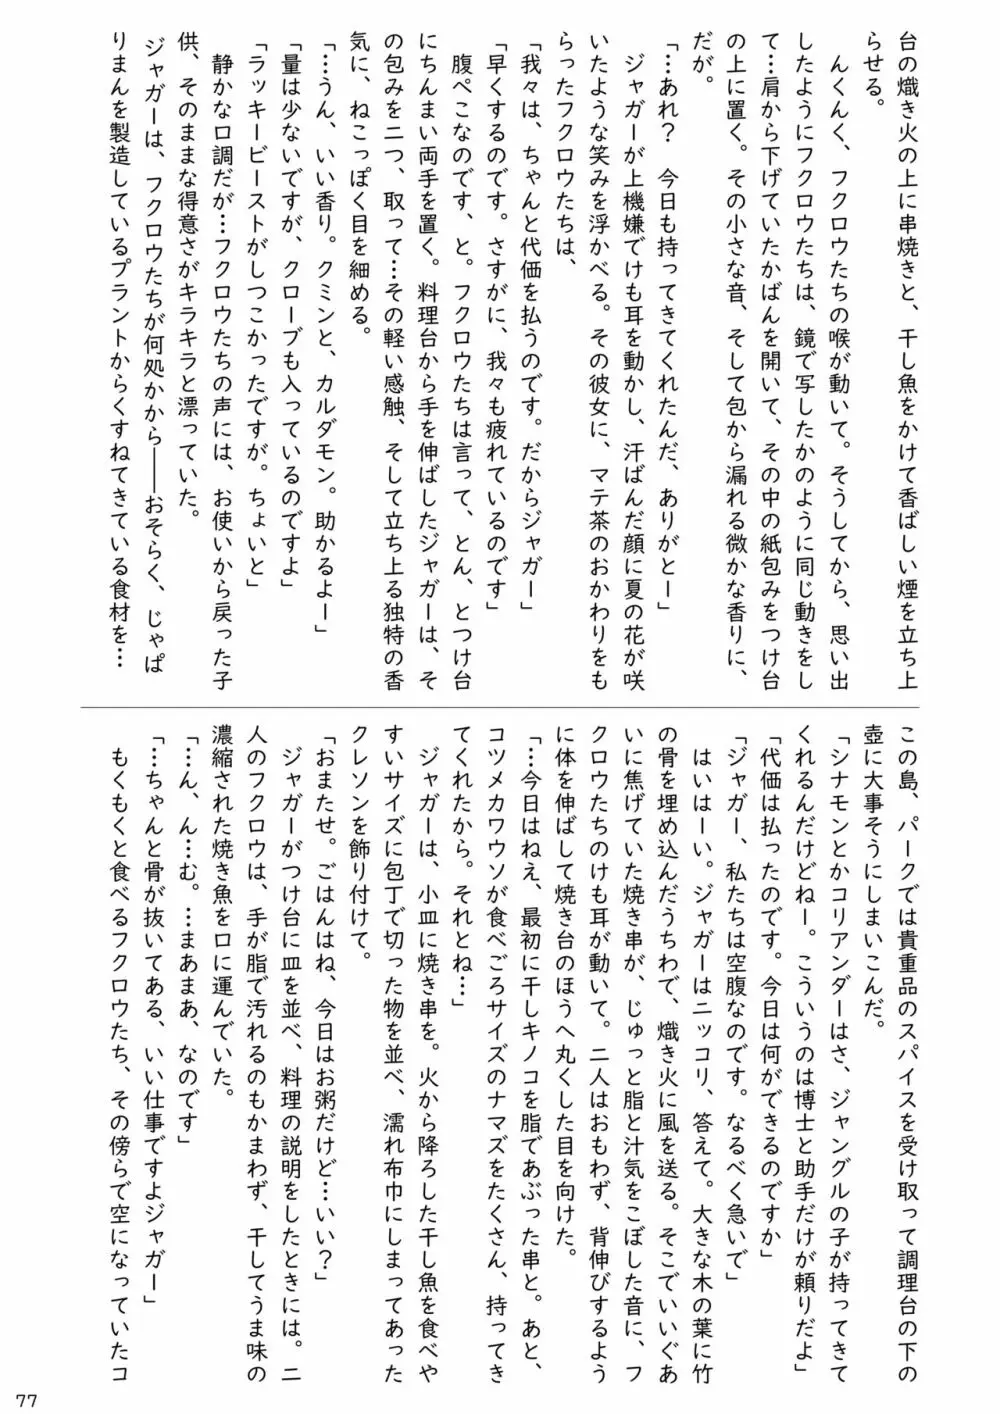 台の熾き火の上に串焼きと、干し魚をかけて香ばしい煙を立ち上
らせる。
　んくんく、フクロウたちの喉が動いて。そうしてから、思い出
したようにフクロウたちは、鏡で写したかのように同じ動きをし
て…肩から下げていたかばんを開いて、その中の紙包みをつけ台
の上に置く。その小さな音、そして包から漏れる微かな香りに、
だが。
「…あれ？　今日も持ってきてくれたんだ、ありがとー」
　ジャガーが上機嫌でけも耳を動かし、汗ばんだ顔に夏の花が咲
いたような笑みを浮かべる。その彼女に、マテ茶のおかわりをも
らったフクロウたちは、
「我々は、ちゃんと代価を払うのです。だからジャガー」
「早くするのです。さすがに、我々も疲れているのです」
　腹ぺこなのです、と。フクロウたちは言って、とん、とつけ台
にちんまい両手を置く。料理台から手を伸ばしたジャガーは、そ
の包みを二つ、取って…その軽い感触、そして立ち上る独特の香
気に、ねこっぽく目を細める。
「…うん、いい香り。クミンと、カルダモン。助かるよー」
「量は少ないですが、クローブも入っているのですよ」
「ラッキービーストがしつこかったですが。ちょいと」
　静かな口調だが…フクロウたちの声には、お使いから戻った子
供、そのままな得意さがキラキラと漂っていた。
　ジャガーは、フクロウたちが何処かから――おそらく、じゃぱ
りまんを製造しているプラントからくすねてきている食材を…
この島、パークでは貴重品のスパイスを受け取って調理台の下の
壺に大事そうにしまいこんだ。
「シナモンとかコリアンダーはさ、ジャングルの子が持ってきて
くれるんだけどねー。こういうのは博士と助手だけが頼りだよ」
「代価は払ったのです。今日は何ができるのですか」
「ジャガー、私たちは空腹なのです。なるべく急いで」
　はいはーい。ジャガーはニッコリ、答えて。大きな木の葉に竹
の骨を埋め込んだうちわで、熾き火に風を送る。そこでいいぐあ
いに焦げていた焼き串が、じゅっと脂と汁気をこぼした音に、フ
クロウたちのけも耳が動いて。二人はおもわず、背伸びするよう
に体を伸ばして焼き台のほうへ丸くした目を向けた。
「…今日はねえ、最初に干しキノコを脂であぶった串と。あと、
コツメカワウソが食べごろサイズのナマズをたくさん、持ってき
てくれたから。それとね…」
　ジャガーは、小皿に焼き串を。火から降ろした干し魚を食べや
すいサイズに包丁で切った物を並べ、濡れ布巾にしまってあった
クレソンを飾り付けて。
「おまたせ。ごはんはね、今日はお粥だけど…いい？」
　ジャガーがつけ台に皿を並べ、料理の説明をしたときには。二
人のフクロウは、手が脂で汚れるのもかまわず、干してうま味の
濃縮された焼き魚を口に運んでいた。
「…ん、ん…む。…まあまあ、なのです」
「…ちゃんと骨が抜いてある、いい仕事ですよジャガー」
　もくもくと食べるフクロウたち、その傍らで空になっていたコ
77